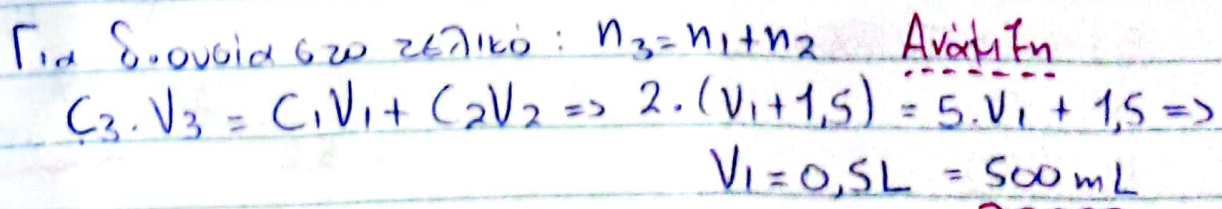 Για δ.ουσία στο τελικό : n₃=n₁+n₂ Ανάμιξη
C₃.V₃ = C₁V₁+ C₂V₂ => 2.(V₁+1,5) = 5.V₁ + 1,5 =>
V₁=0,5L = 500mL